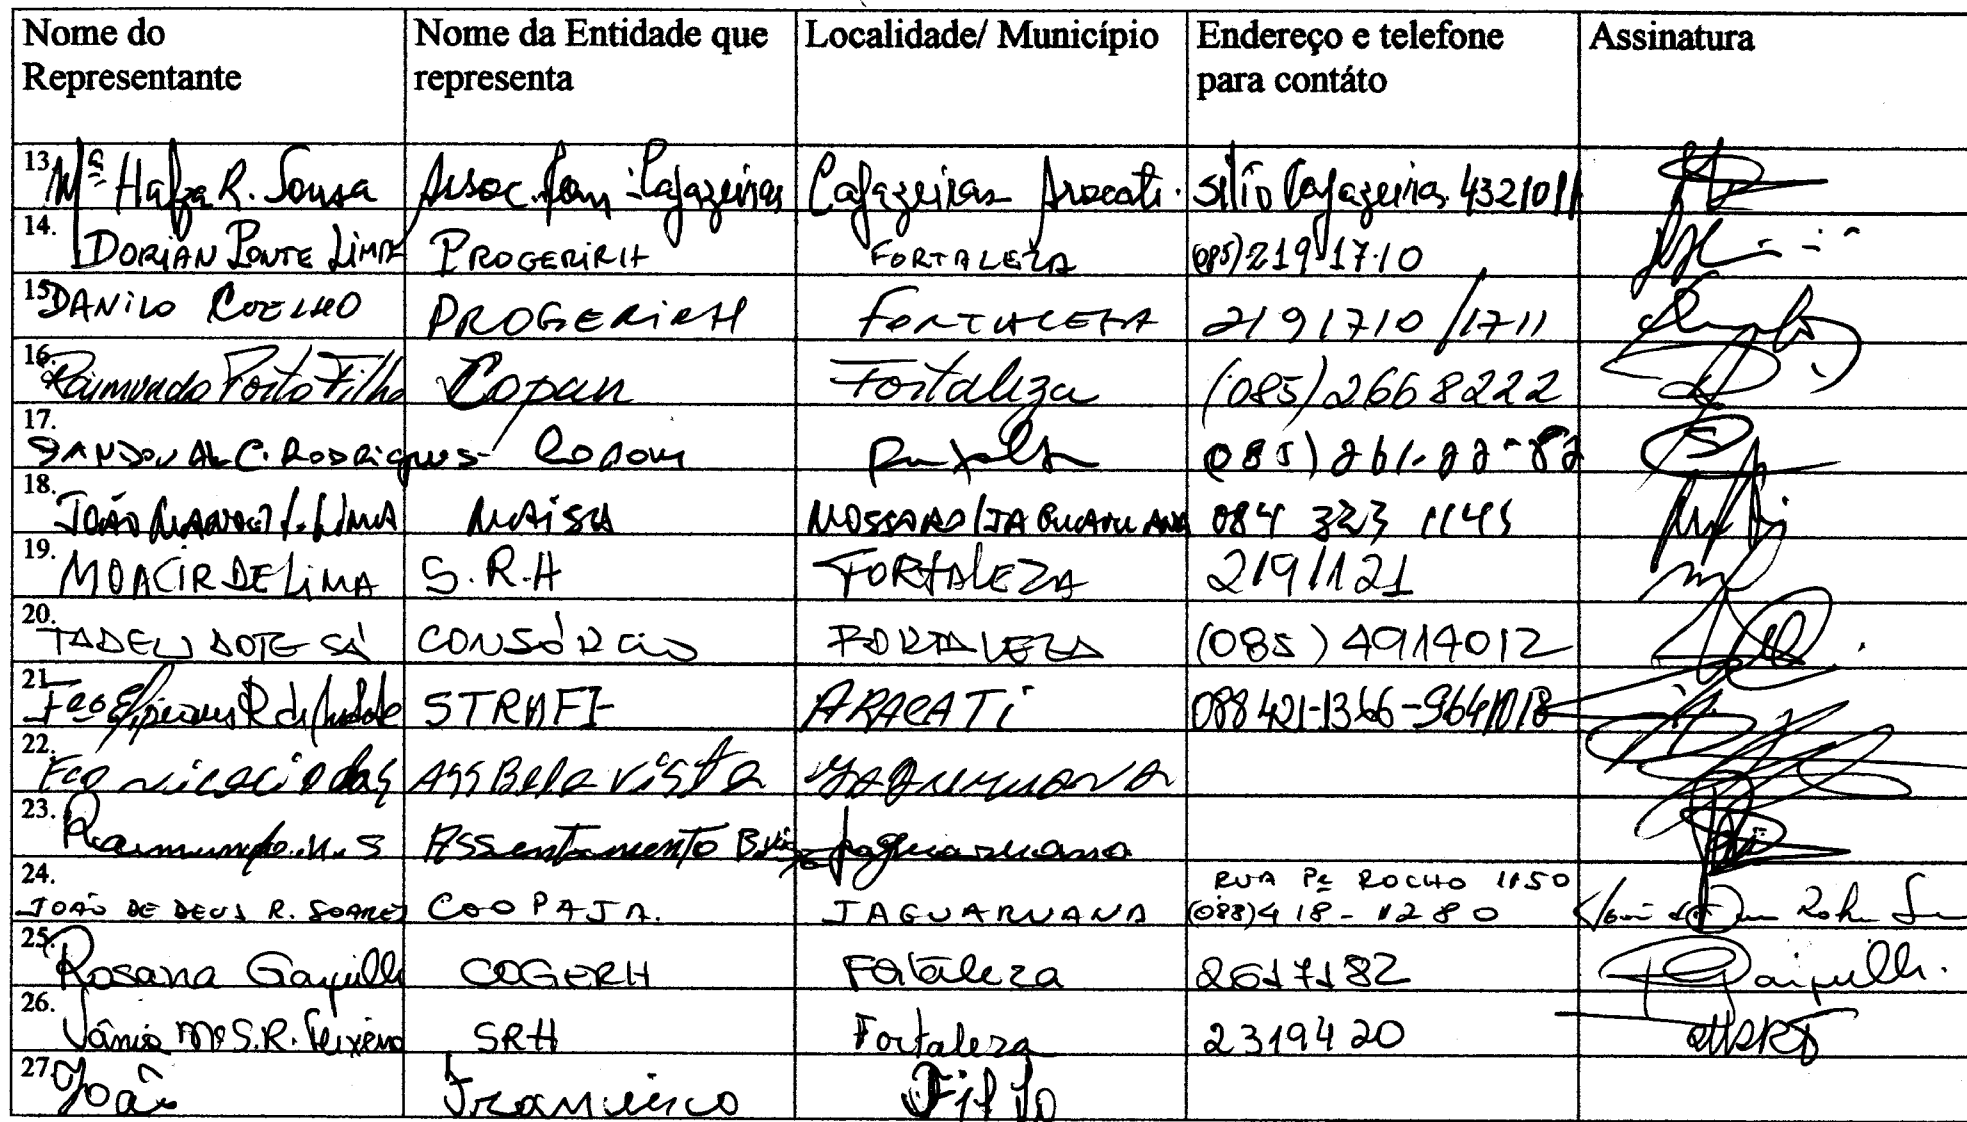 Nome do Representante | Nome da Entidade que representa | Localidade/ Município | Endereço e telefone para contáto | Assinatura
13. Mª Hafza R. Sousa | Assoc. Com. Cajazeiras | Cajazeiras Aracati. | Sitio Cajazeiras 4321011
14. DORIAN PONTE LIMA | PROGERIRH | FORTALEZA | (085) 219 1710
15. DANILO COELHO | PROGERIRH | FORTALEZA | 2191710 /1711
16. Raimundo Porto Filho | Copan | Fortaleza | (085) 266 8222
17. SANDOVAL C. RODRIGUES | (085) 261-22-82
18. JOÃO MANOEL LIMA | MAISA | MOSSORO/JAGUARUANA | 084 323 1145
19. MOACIR DE LIMA | S.R.H | FORTALEZA | 2191121
20. TADEU DOTE SÁ | CONSÓRCIO | FORTALEZA | (085) 4914012
21. Fco | STRAFI | ARACATI | 088 421-1366-9641018
22. Fco | ASS Bela vista | JAGUARUANA
23. Raimundo. N. S | Assentamento B. Vis | Jaguaruana
24. JOÃO DE DEUS R. SOARES | COOPAJA. | JAGUARUANA | RUA Pe ROCHO 1150
(088) 418-1280
25. Rosana Garjulli | COGERH | Fortaleza | 2617182 | Garjulli.
26. Vânia Mª S.R. Teixeira | SRH | Fortaleza | 2319420
27. João | Francisco | Filho